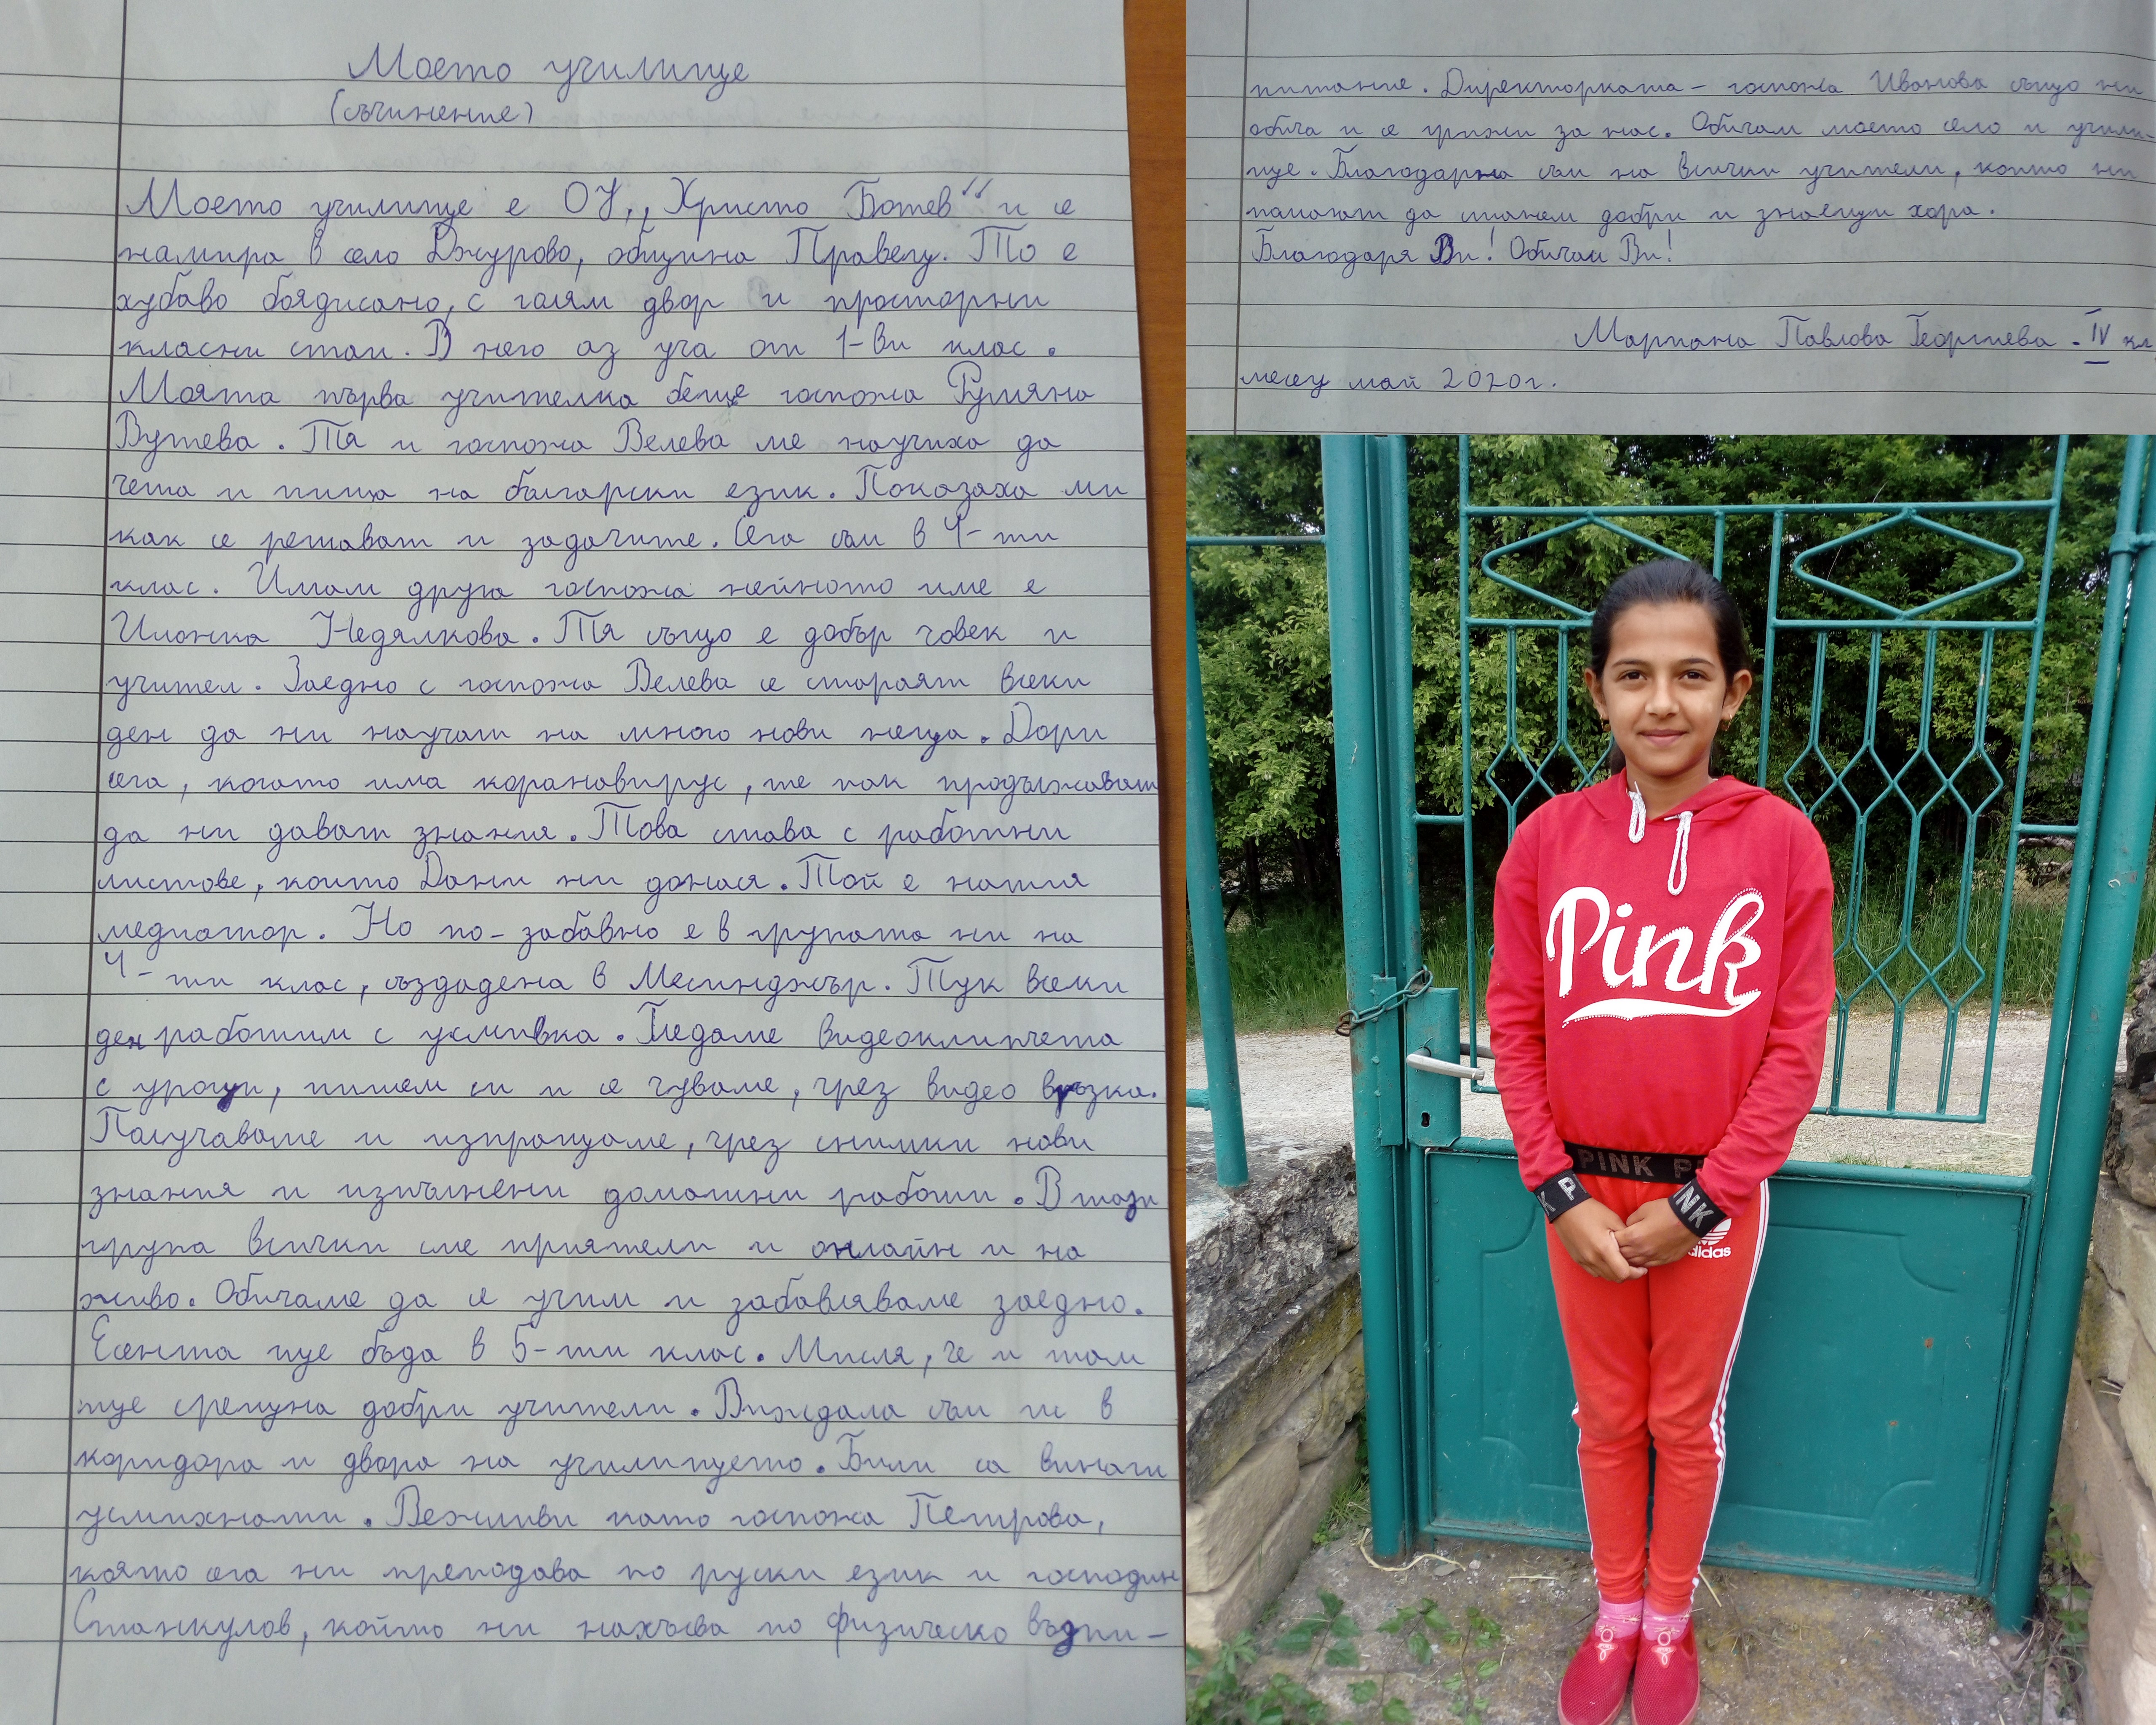 Моето училище
(съчинение)
Моето училище е ОУ,, Христо Ботев" и се
намира в село Джурово, община Правец. То е
хубаво боядисано, с голям двор и просторни
класни стаи. В него аз уча от 1-ви клас.
Моята първа учителка беше госпожа Румяна
Вутева. Тя и госпожа Велева ме научиха да
чета и пиша на български език. Показаха ми
как се решават и задачите. Сега съм в 4-ти
клас. Имам друга госпожа нейното име е
Илонка Недялкова. Тя също е добър човек и
учител. Заедно с госпожа Велева се стараят всеки
ден да ни научат на много нови неща. Дори
сега, когато има коранавирус, те пак продължават
да ни дават знания. Това става с работни
листове, които Дани ни донася. Той е нашия
медиатор. Но по-забавно е в групата ни на
4-ти клас, създадена в Месинджър. Тук всеки
ден работим с усмивка. Гледаме видеоклипчета
с уроци, пишем си и се чуваме, чрез видео връзка.
Получаваме и изпращаме, чрез снимки нови
знания и изпълнени домашни работи. В тази
група всички сме приятели и онлайн и на
живо. Обичаме да се учим и забавляваме заедно.
Есента ще бъда в 5-ти клас. Мисля, че и там
ще срещна добри учители. Виждала съм ги в
коридора и двора на училището. Били са винаги
усмихнати. Вежливи като госпожа Петрова,
която сега ни преподава по руски език и господин
Станкулов, който ни нахъсва по физическо възпи-
питание. Директорката - госпожа Иванова също ни
обича и се грижи за нас. Обичам моето село и учили-
ще. Благодарна съм на всички учители, които ни
помагат да станем добри и знаещи хора.
Благодаря Ви! Обичам Ви!
Мариана Павлова Георгиева - IV кл
месец май 2020г.
Pink
PINK P
K P
NK
adidas